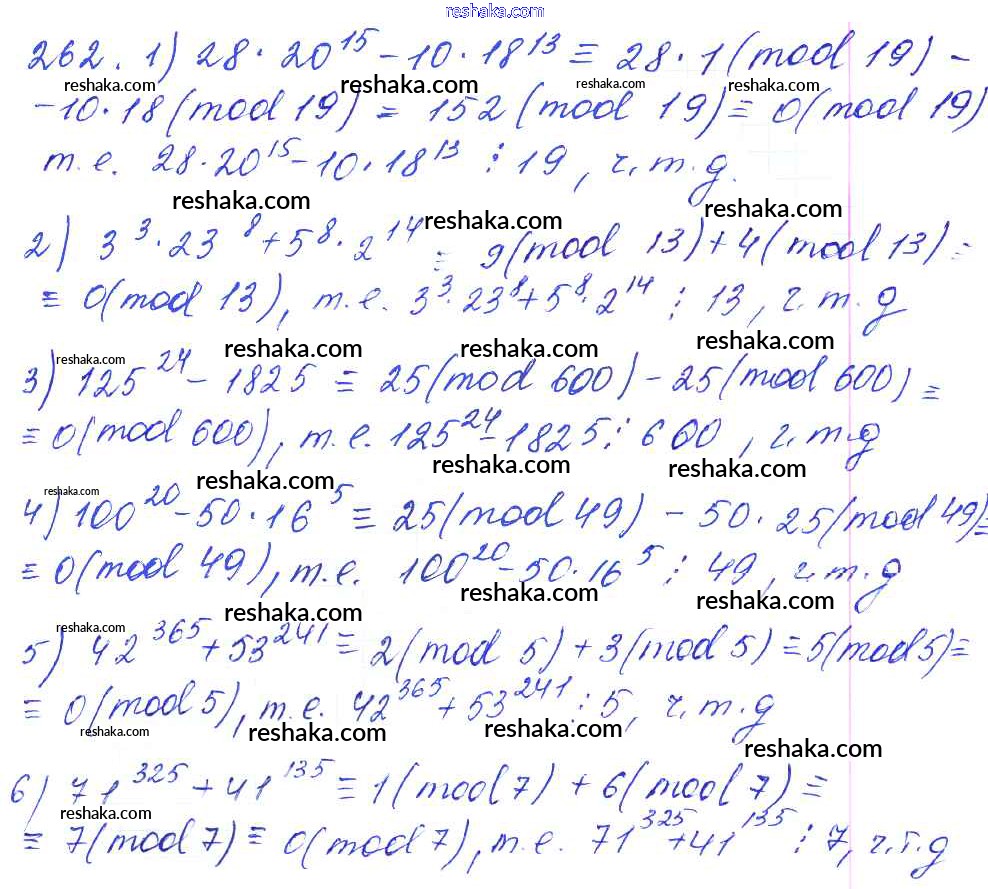 reshaka.com
262. 1) 28·20¹⁵ – 10·18¹³ ≡ 28·1(mod 19) –
reshaka.com reshaka.com reshaka.com reshaka.com
–10·18(mod 19) = 152(mod 19) ≡ 0(mod 19)
т.е. 28·20¹⁵–10·18¹³ ⋮ 19, ч.т.д.
reshaka.com reshaka.com reshaka.com
2) 3³·23⁸+5⁸·2¹⁴ ≡ 9(mod 13)+4(mod 13) ≡
≡ 0(mod 13), т.е. 3³·23⁸+5⁸·2¹⁴ ⋮ 13, ч.т.д
reshaka.com reshaka.com reshaka.com reshaka.com
3) 125²⁴ – 1825 ≡ 25(mod 600) – 25(mod 600) ≡
≡ 0(mod 600), т.е. 125²⁴–1825 ⋮ 600, ч.т.д
reshaka.com reshaka.com reshaka.com reshaka.com
4) 100²⁰ – 50·16⁵ ≡ 25(mod 49) – 50·25(mod 49) ≡
≡ 0(mod 49), т.е. 100²⁰–50·16⁵ ⋮ 49, ч.т.д
reshaka.com reshaka.com reshaka.com reshaka.com
5) 42³⁶⁵+53²⁴¹ ≡ 2(mod 5)+3(mod 5) ≡ 5(mod 5) ≡
≡ 0(mod 5), т.е. 42³⁶⁵+53²⁴¹ ⋮ 5, ч.т.д
reshaka.com reshaka.com reshaka.com reshaka.com
6) 71³²⁵ + 41¹³⁵ ≡ 1(mod 7) + 6(mod 7) ≡
reshaka.com
≡ 7(mod 7) ≡ 0(mod 7), т.е. 71³²⁵+41¹³⁵ ⋮ 7, ч.т.д